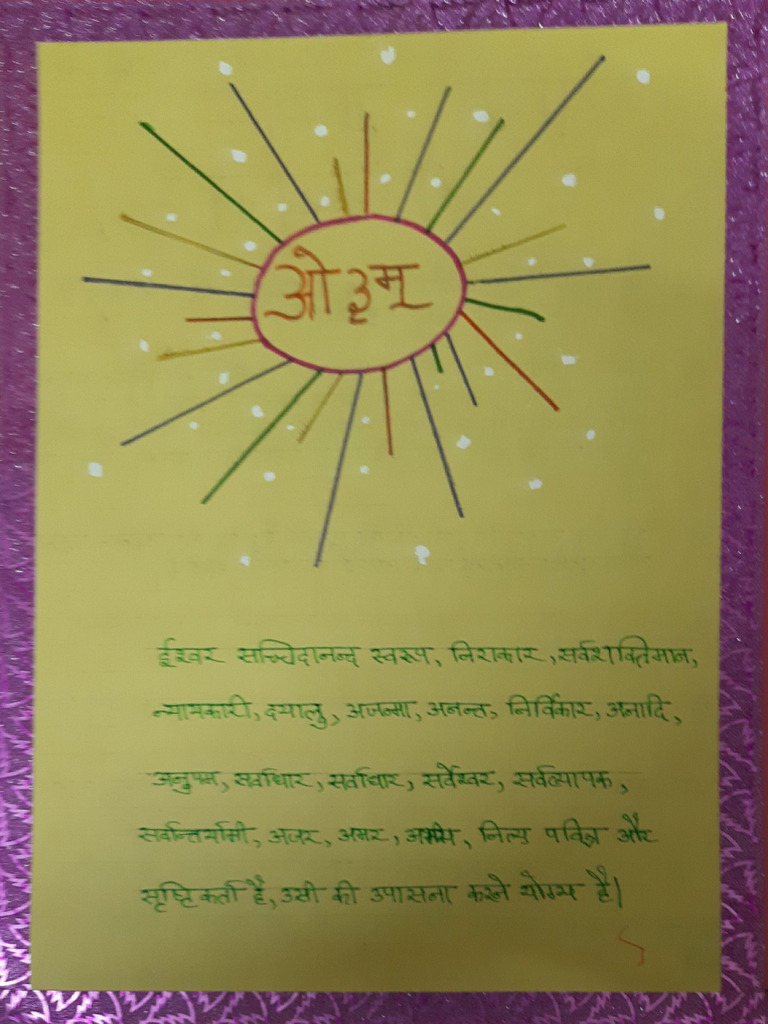 ओ३म्
ईश्वर सच्चिदानन्द स्वरूप, निराकार, सर्वशक्तिमान,
न्यायकारी, दयालु, अजन्मा, अनन्त, निर्विकार, अनादि,
अनुपम, सर्वाधार, सर्वाधार, सर्वेश्वर, सर्वव्यापक,
सर्वान्तर्यामी, अजर, अमर, अभय, नित्य पवित्र और
सृष्टिकर्ता है, उसी की उपासना करने योग्य है।